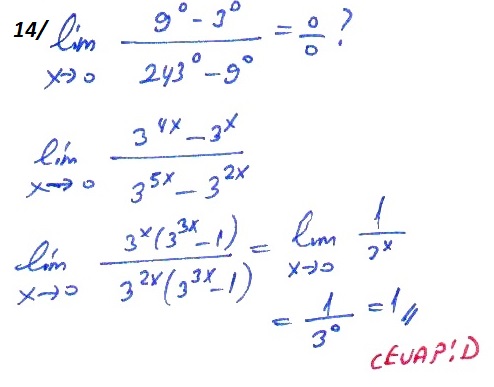 14/ lim x→0 (9^0 - 3^0)/(243^0 - 9^0) = 0/0 ?
lim x→0 (3^{4x} - 3^x)/(3^{5x} - 3^{2x})
lim x→0 (3^x(3^{3x} - 1))/(3^{2x}(3^{3x} - 1)) = lim x→0 1/3^x
= 1/3^0 = 1 //
CEVAP: D